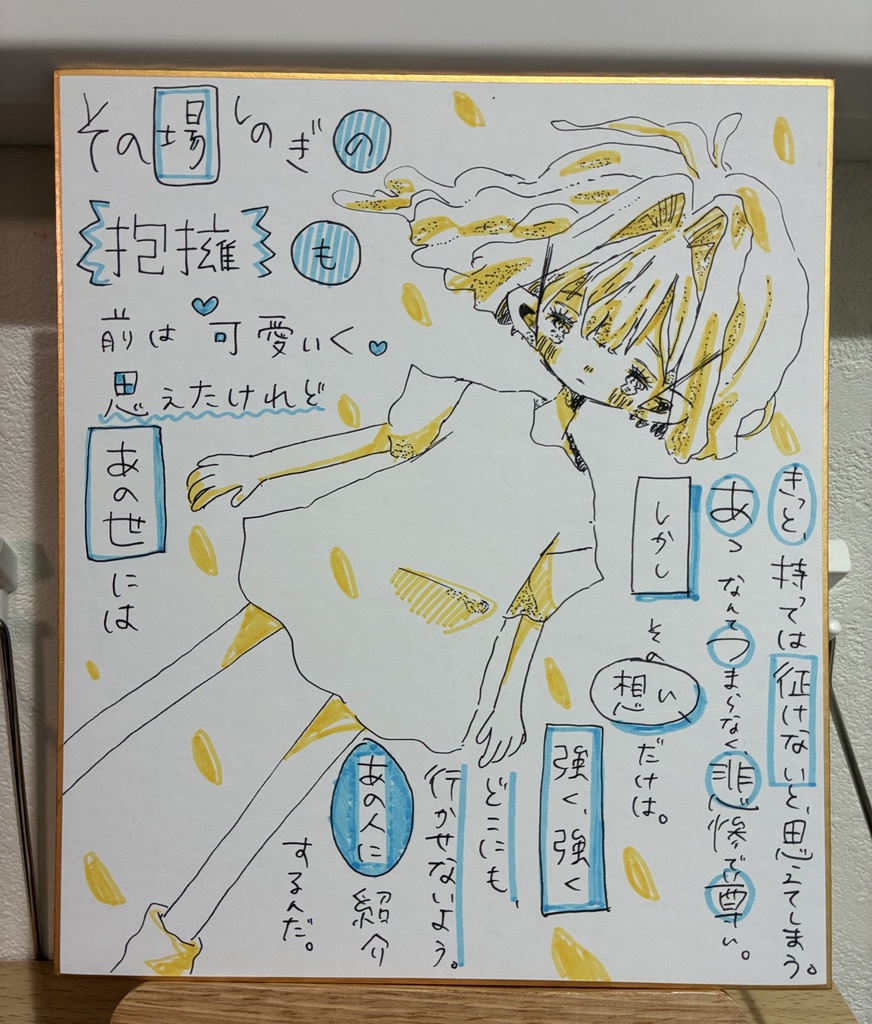 その場しのぎの
抱擁も
前は可愛いく
思えたけれど
あの世には
きっと、持っては征けないと、思えてしまう。
あっ なんてつまらなく、悲惨で尊い。
しかし
その想いだけは。
強く、強く
どこにも、
行かせないよう。
あの人に紹介
するんだ。